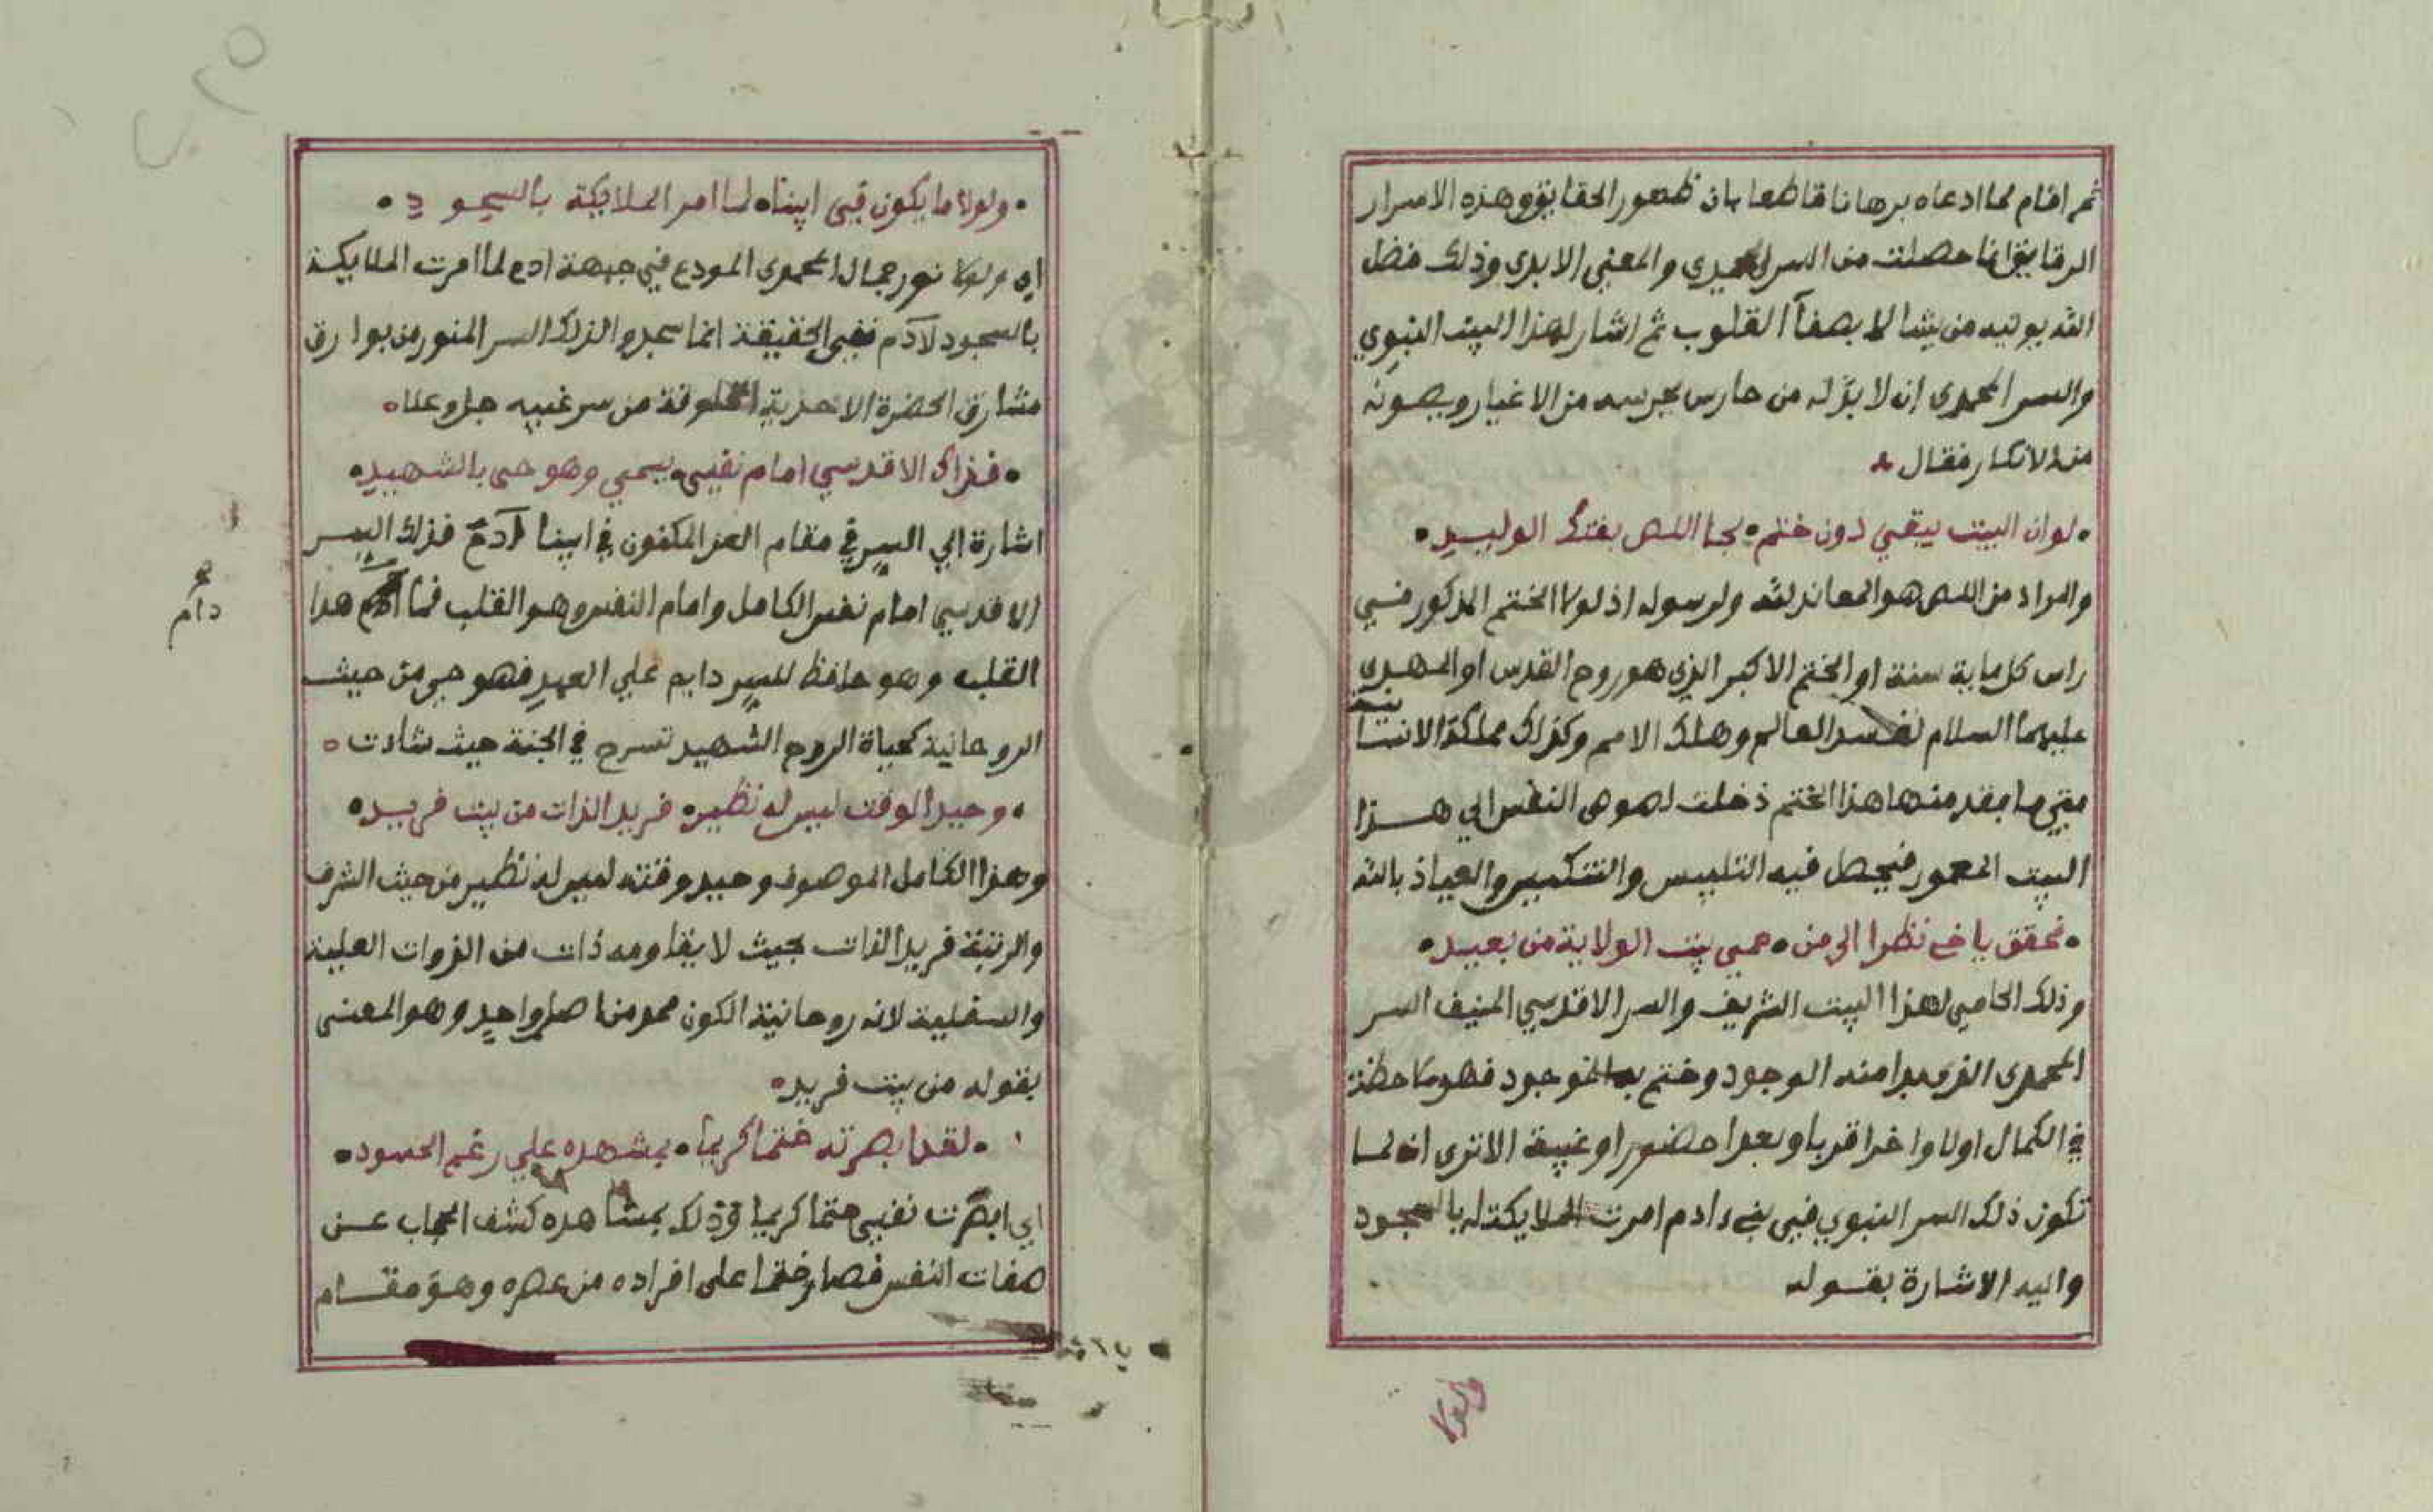 ثم اقام لما ادعاه برهانا قاطعا بان ظهور الحقايق وهذه الاسرار
الرقايق انما حصلت من السر المحمدي والمعني الابدي وذلك فضل
الله يوتيه من يشا لا بصفآ القلوب ثم اشار لهذا البيت النبوي
والسر المحمدي ان لا بد له من حارس يحرسه من الاغيار ويصونه
من الانكار فقال
لو ان البيت يبقي دون ختم • لجا اللص يفتك الوليد •
والمراد من اللص هو المعاند لله ولرسوله اذ لولا الختم المذكور في
راس كل ماية سنة او الختم الاكبر الذي هو روح القدس او المهدي
عليهما السلام لفسد العالم وهلك الامم وكذلك مملكة الانسانية
متي ما فقد منها هذا الختم دخلت لهوى النفس الي هذا
البيت المعمور فيحصل فيه التلبيس والتنكيس والعياذ بالله
• فحقق يا خي نظرا الى من • حمي بيت الولاية من بعيد •
وذلك الحامي لهذا البيت الشريف والسر الاقدسي المنيف السر
المحمدي الذي بدا منه الوجود وختم به الموجود فهو ملاحظته
في الكمال اولا واخرا قربا وبعدا حضورا وغيبة الا تري انه لما
تكون ذلك السر النبوي في ادم امرت الملايكة له بالسجود
واليه الاشارة بقوله
ولولا
• ولولا ما يكون في ابينا • لما امر الملايكة بالسجود •
اي ولولا نور جمال المحمدي المودع في جبهة ادم لما امرت الملايكة
بالسجود لآدم ففي الحقيقة انما سجدوا لذلك السر المنور من بوارق
مشارق الحضرة الاحدية المخلوقة من سر غيبه جل وعلا •
• فذاك الاقدسي امام نفسي • يسمي وهو حي بالشهيد •
اشارة الي السر في مقام العز المكنون في ابينا آدم فذلك السر
الاقدسي امام نفس الكامل وامام النفس هو القلب فما دام هذا
دام
القلب وهو حافظ للسر دايم علي العهد فهو حي من حيث
الروحانية كحياة الروح الشهيد تسرح في الجنة حيث شات •
• وحيد الوقت ليس له نظير • فريد الذات من بيت فريد •
وهذا الكامل الموصوف وحيد وقته ليس له نظير من حيث الشرف
والرتبة فريد الذات بحيث لا يقاومه ذات من الذوات العلية
والسفلية لانه روحانية الكون محمد من اصل واحد وهو المعني
بقوله من بيت فريد •
• لقد ابصرته ختما كريما • بمشهده علي رغم الحسود •
اي ابصرت نفسي ختما كريما وذلك بمشاهدة كشف الحجاب عن
صفات النفس فصار ختما على افراده من عصره وهو مقام